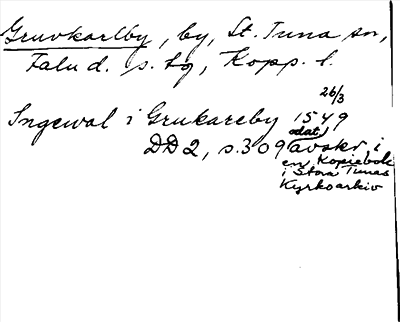 Gruvkarlby, by, St. Tuna sn,
Falu d. s. tg, Kopp. l.
26/3
Ingewal i Grukareby 1549
odat.
DD2, s.309 avskr i
en Kopiebok
i Stora Tunas
Kyrkoarkiv